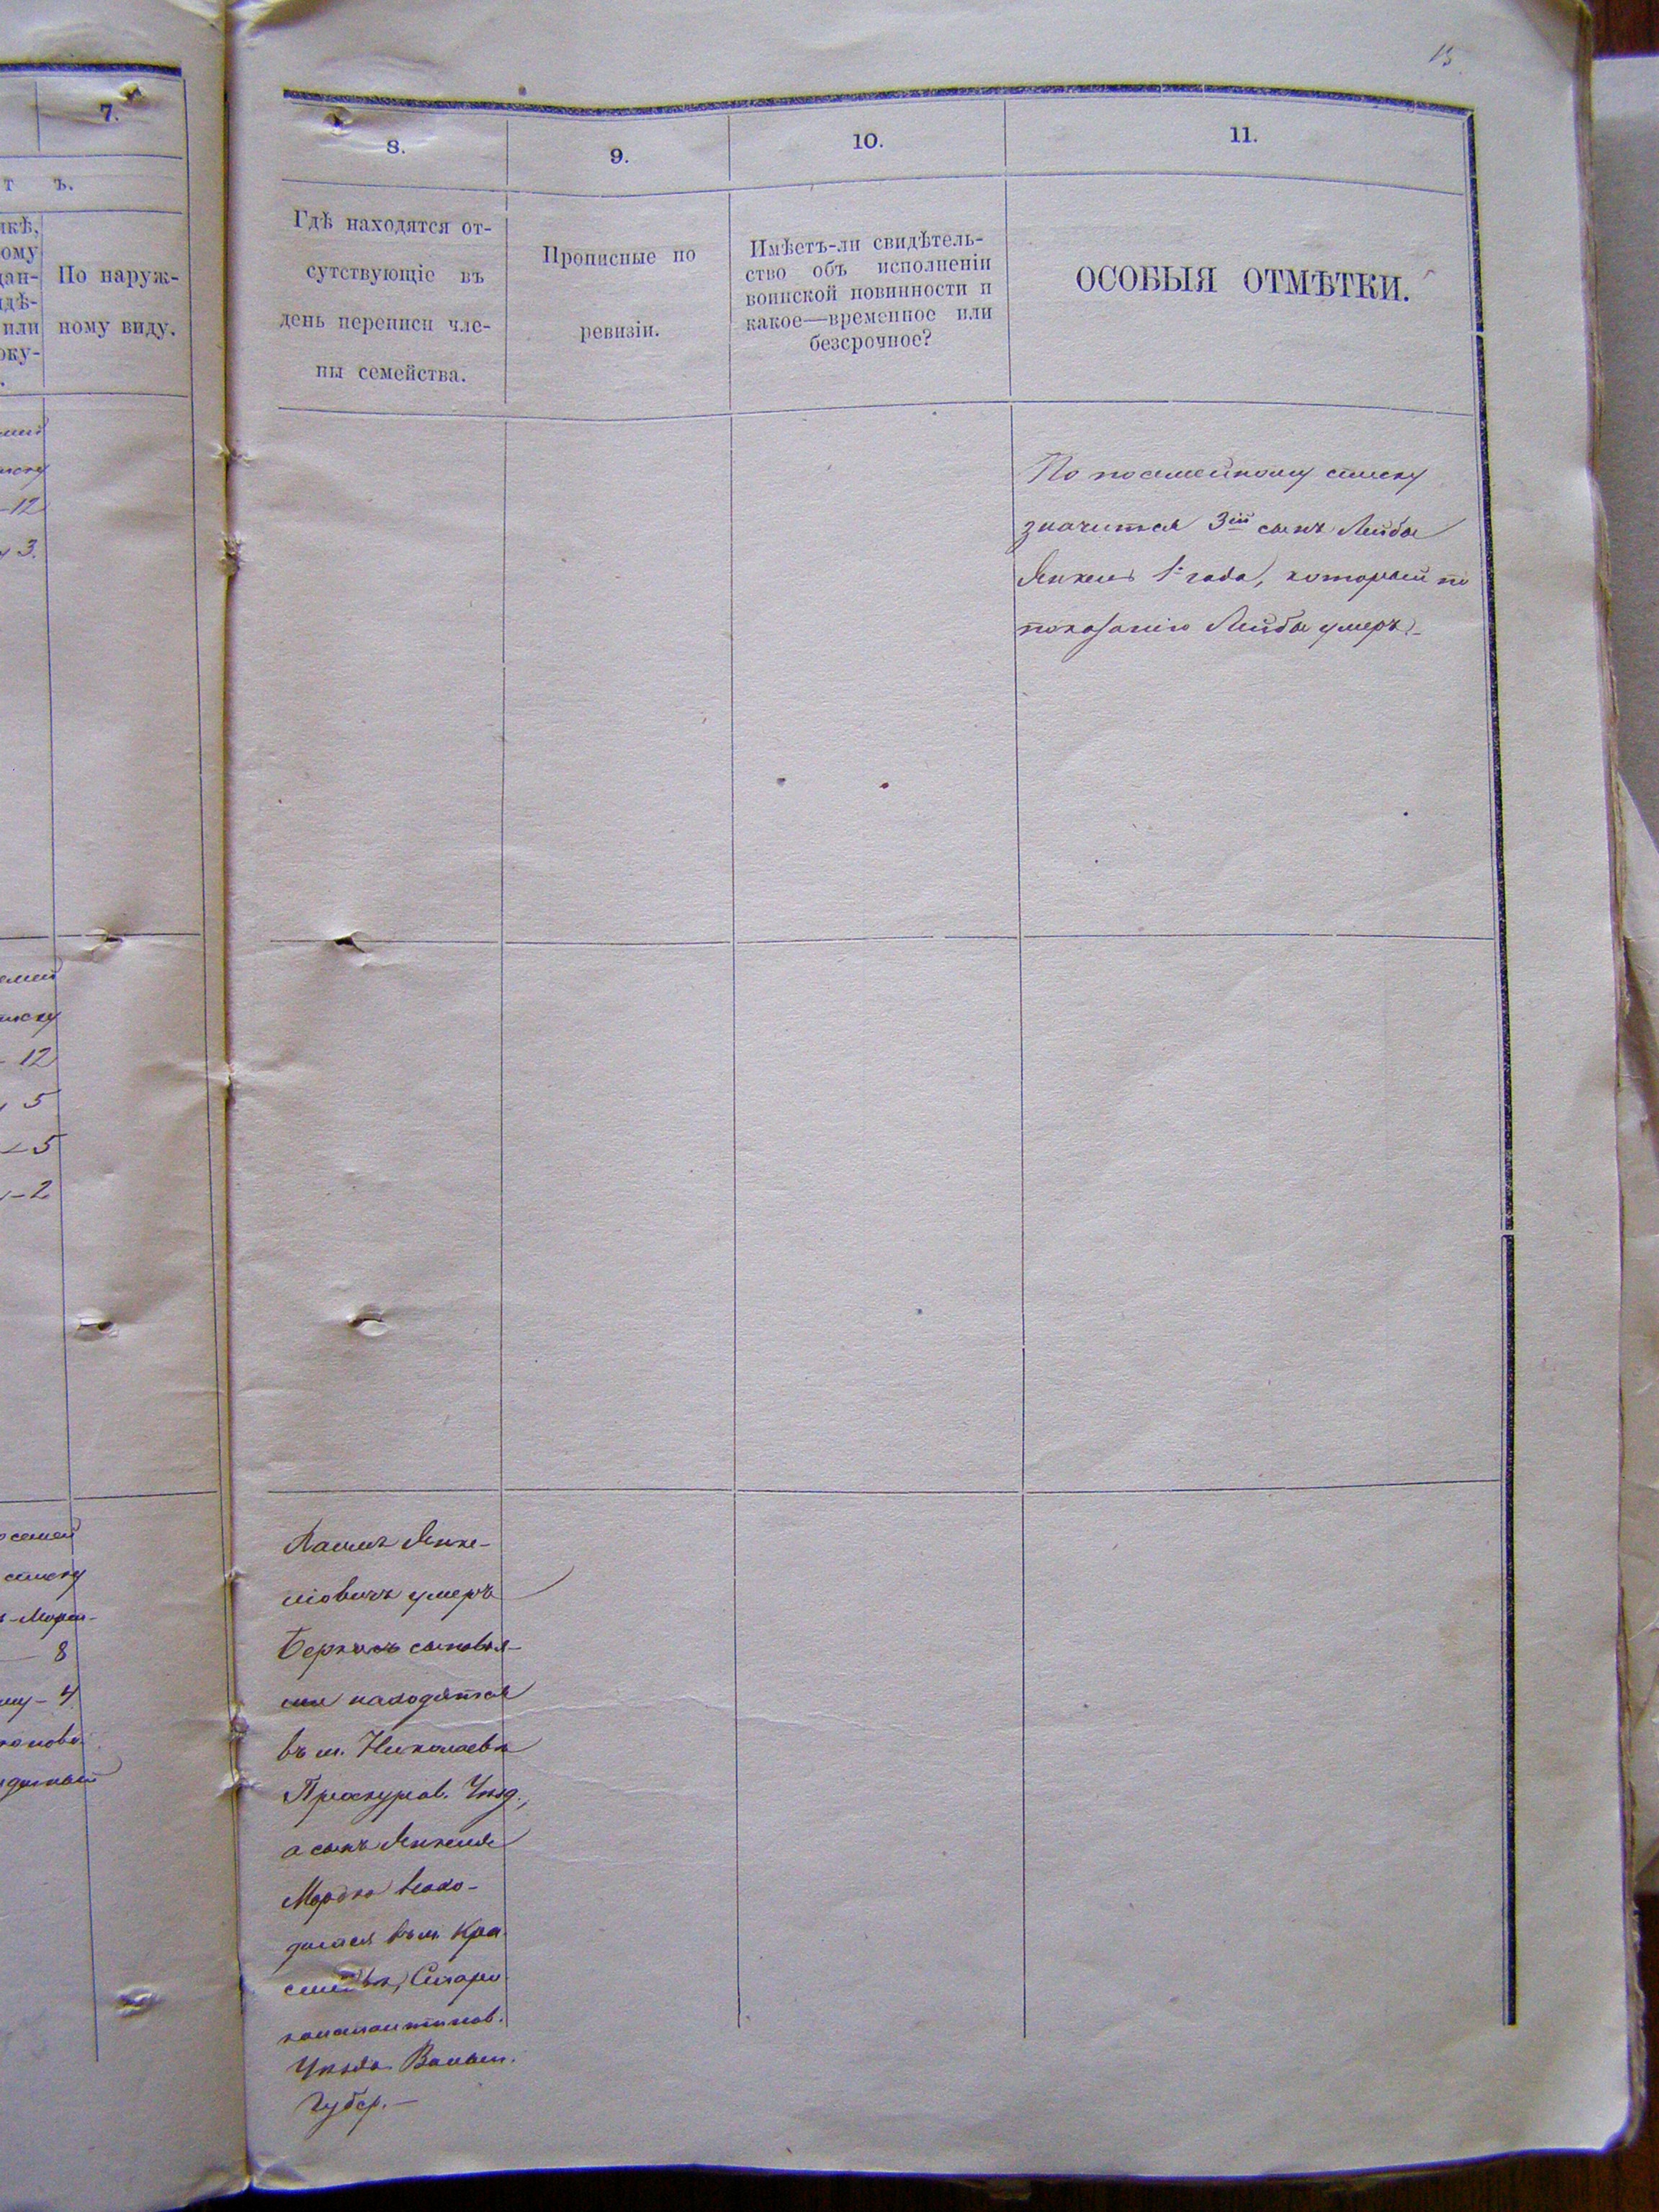 15
7.
т ъ.
По наруж-
ному виду.
-12
3.
- 12
5
5
- 2
списку
8
- 4
8.
9.
10.
11.
Гдѣ находятся от-
сутствующіе въ
день переписи чле-
ны семейства.
Прописные по
ревизіи.
Имѣетъ-ли свидѣтель-
ство объ исполненіи
воинской повинности и
какое—временное или
безсрочное?
ОСОБЫЯ ОТМѢТКИ.
По посемейному списку
значится 3ій сынъ Лейбы
Янкель 1 года, который по
показанію Лейбы умеръ.-
Янке-
ліовичъ умеръ
Берко съ сыновья-
ми находятся
въ м. Николаевѣ
Проскуров. Уѣзд.,
а сынъ Янкеля
Мордко нахо-
дится въ м. Кра-
силовѣ, Старо
константинов.
Уѣзда Волын.
Губер.—